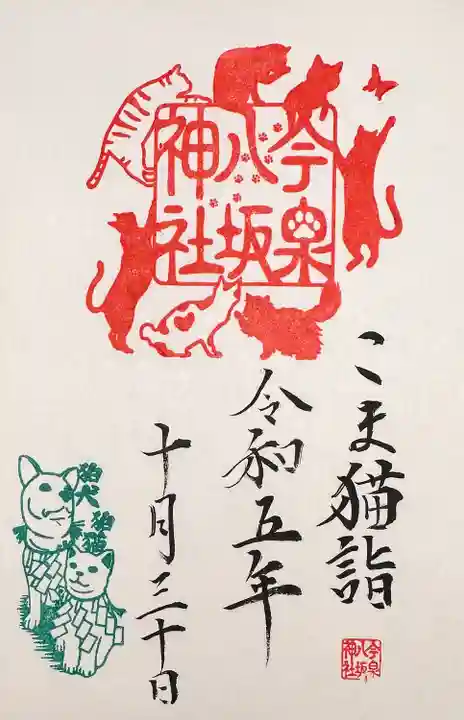 今泉
八坂
神社
こま猫詣
令和五年
十月三十日
狛犬
狛猫
今泉
八坂
神社